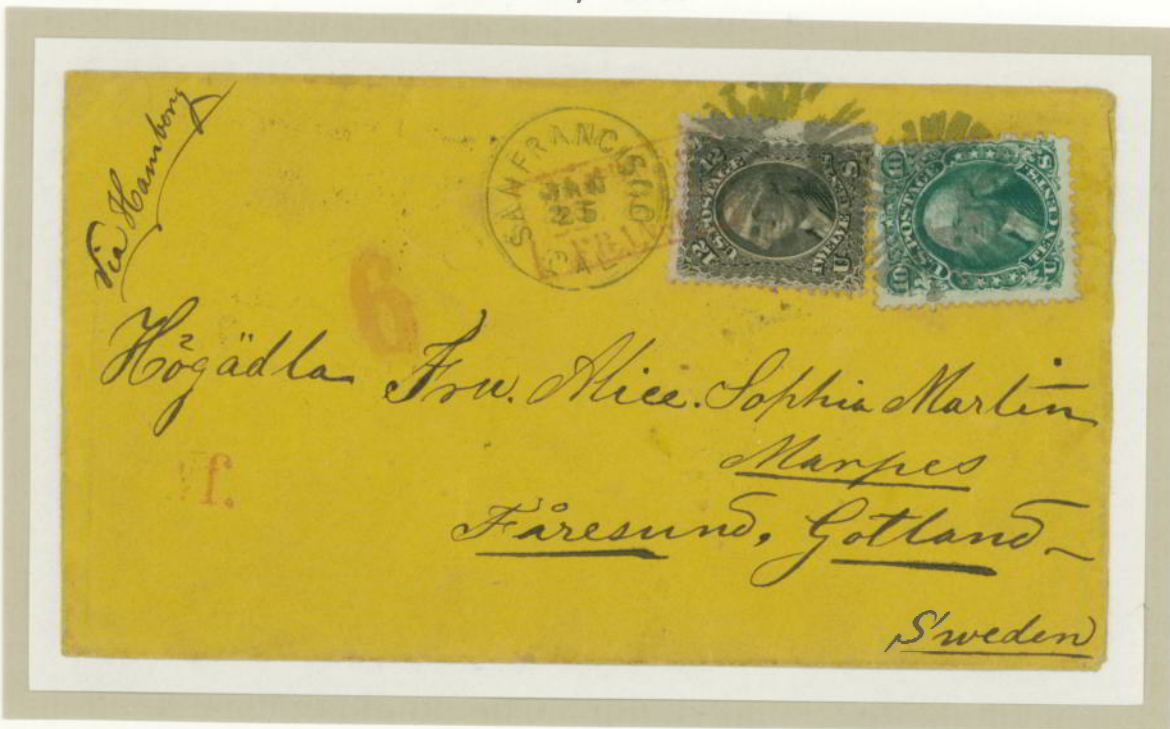 Via Hamborg
SAN FRANCISCO
25
CAL
12 U.S. POSTAGE 12
TWELVE CENTS
U S
10 U.S. POSTAGE 10
TEN CENTS
U S
6
Högädla Fru. Alice. Sophia Martin
f.
Marpes
Fåresund, Gotland
Sweden